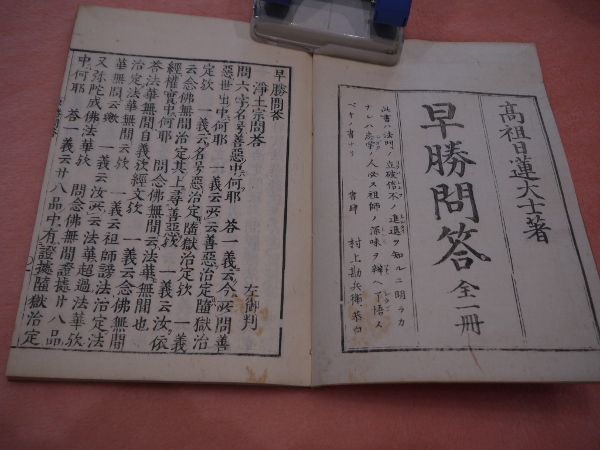 高祖日蓮大士著
早勝問答 全一冊
此書ハ法門ノ立破信不ノ進退ヲ知ルニ明ラカ
ナレハ志学ノ人必ス祖師ノ深味ヲ辨ヘ了悟ス
ヘキノ書ナリ
書肆 村上勘兵衛恭白
早勝問答
浄土宗問答 在御判
問六字名号善悪中何耶 答一義云今所問善
悪世出中何耶 一義云所云善悪治定隨獄治
定欤 一義云名号悪治定隨獄治定欤 一義
云念佛無間治定其上尋善悪欤 一義云汝依
經權實中何耶 問念佛無間云法華無間也
答法華無間自義欤經文欤 一義云念佛無間
治定法華無間云欤 一義云祖師謗法治定法
華無間云欤 一義云汝所云法華超過法華欤
又弥陀成佛法華欤 問念佛無間證據廿八品
中何耶 答一義云廿八品中有證據隨獄治定